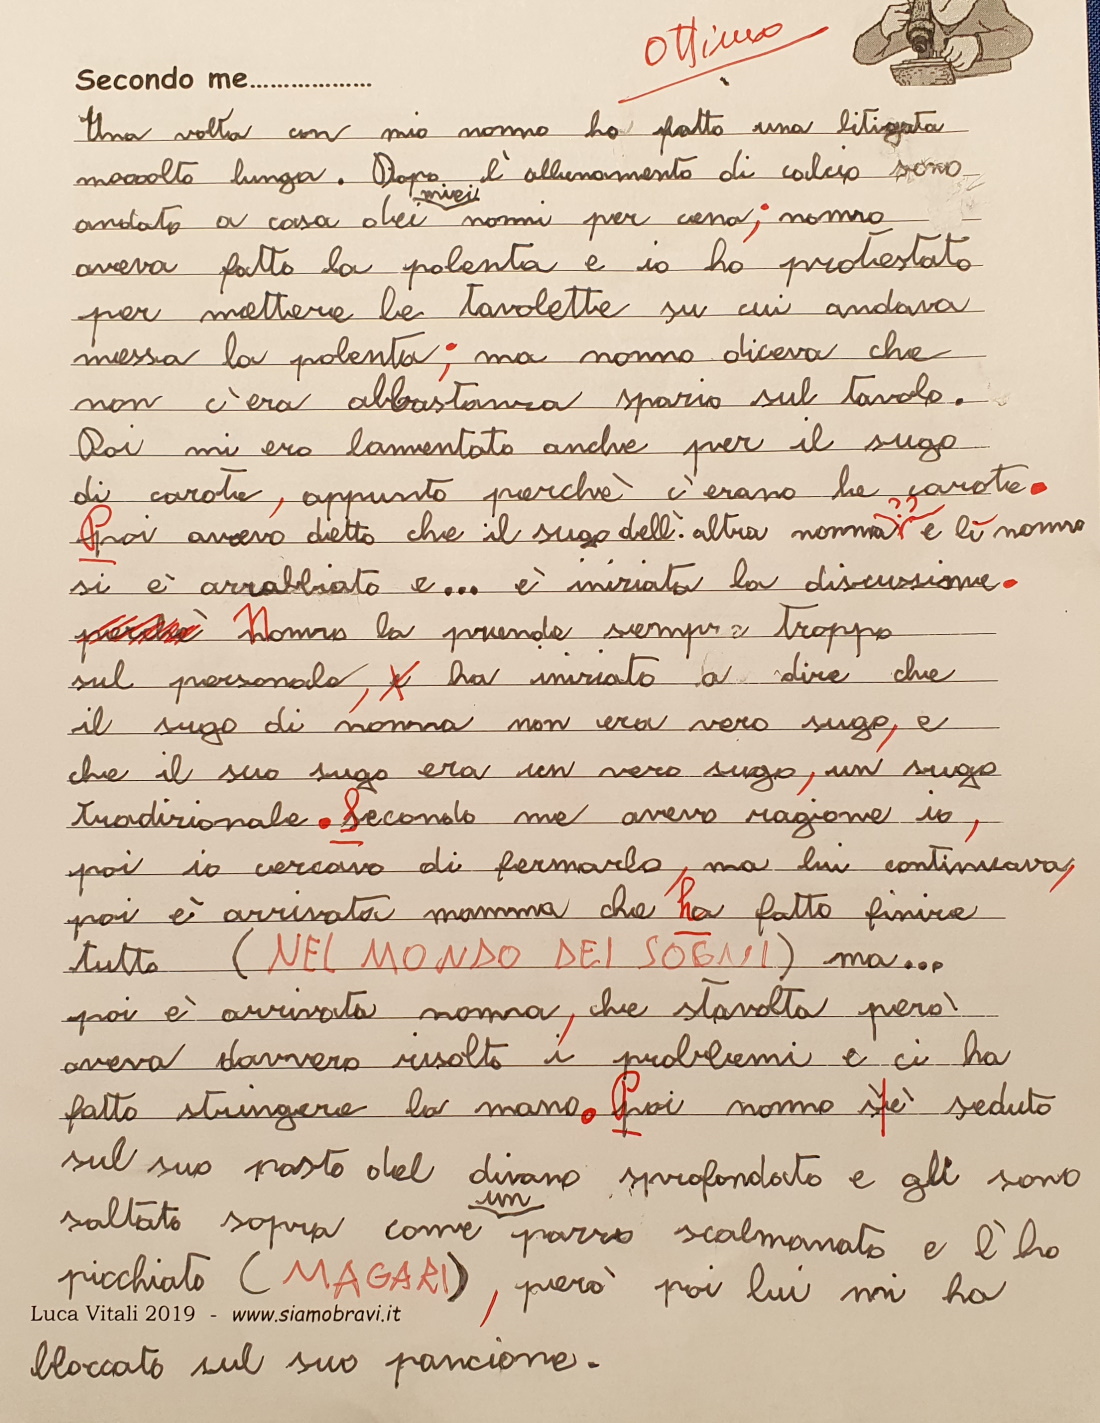 Ottimo
Secondo me..................
Una volta con mio nonno ho fatto una litigata
mooolto lunga. Dopo l'allenamento di calcio sono
miei
andato a casa dei nonni per cena; nonno
aveva fatto la polenta e io ho protestato
per mettere le tavolette su cui andava
messa la polenta; ma nonno diceva che
non c'era abbastanza spazio sul tavolo.
Poi mi ero lamentato anche per il sugo
di carote, appunto perchè c'erano le carote.
Poi avevo detto che il sugo dell'altra nonna ?? e lì nonno
si è arrabbiato e... è iniziata la discussione.
perchè Nonno la prende sempre troppo
sul personale, e ha iniziato a dire che
il sugo di nonna non era vero sugo, e
che il suo sugo era un vero sugo, un sugo
tradizionale. Secondo me avevo ragione io,
poi io cercavo di fermarlo, ma lui continuava,
poi è arrivata mamma che ha fatto finire
tutto (NEL MONDO DEI SOGNI) ma...
poi è arrivata nonna, che stavolta però
aveva davvero risolto i problemi e ci ha
fatto stringere la mano. Poi nonno s'è seduto
sul suo posto del divano sprofondato e gli sono
un
saltato sopra come pazzo scalmanato e l'ho
picchiato (MAGARI), però poi lui mi ha
Luca Vitali 2019 - www.siamobravi.it
bloccato sul suo pancione.